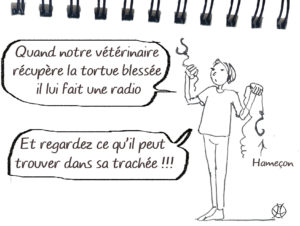 Quand notre vétérinaire
récupère la tortue blessée
il lui fait une radio
Et regardez ce qu'il peut
trouver dans sa trachée !!!
Hameçon